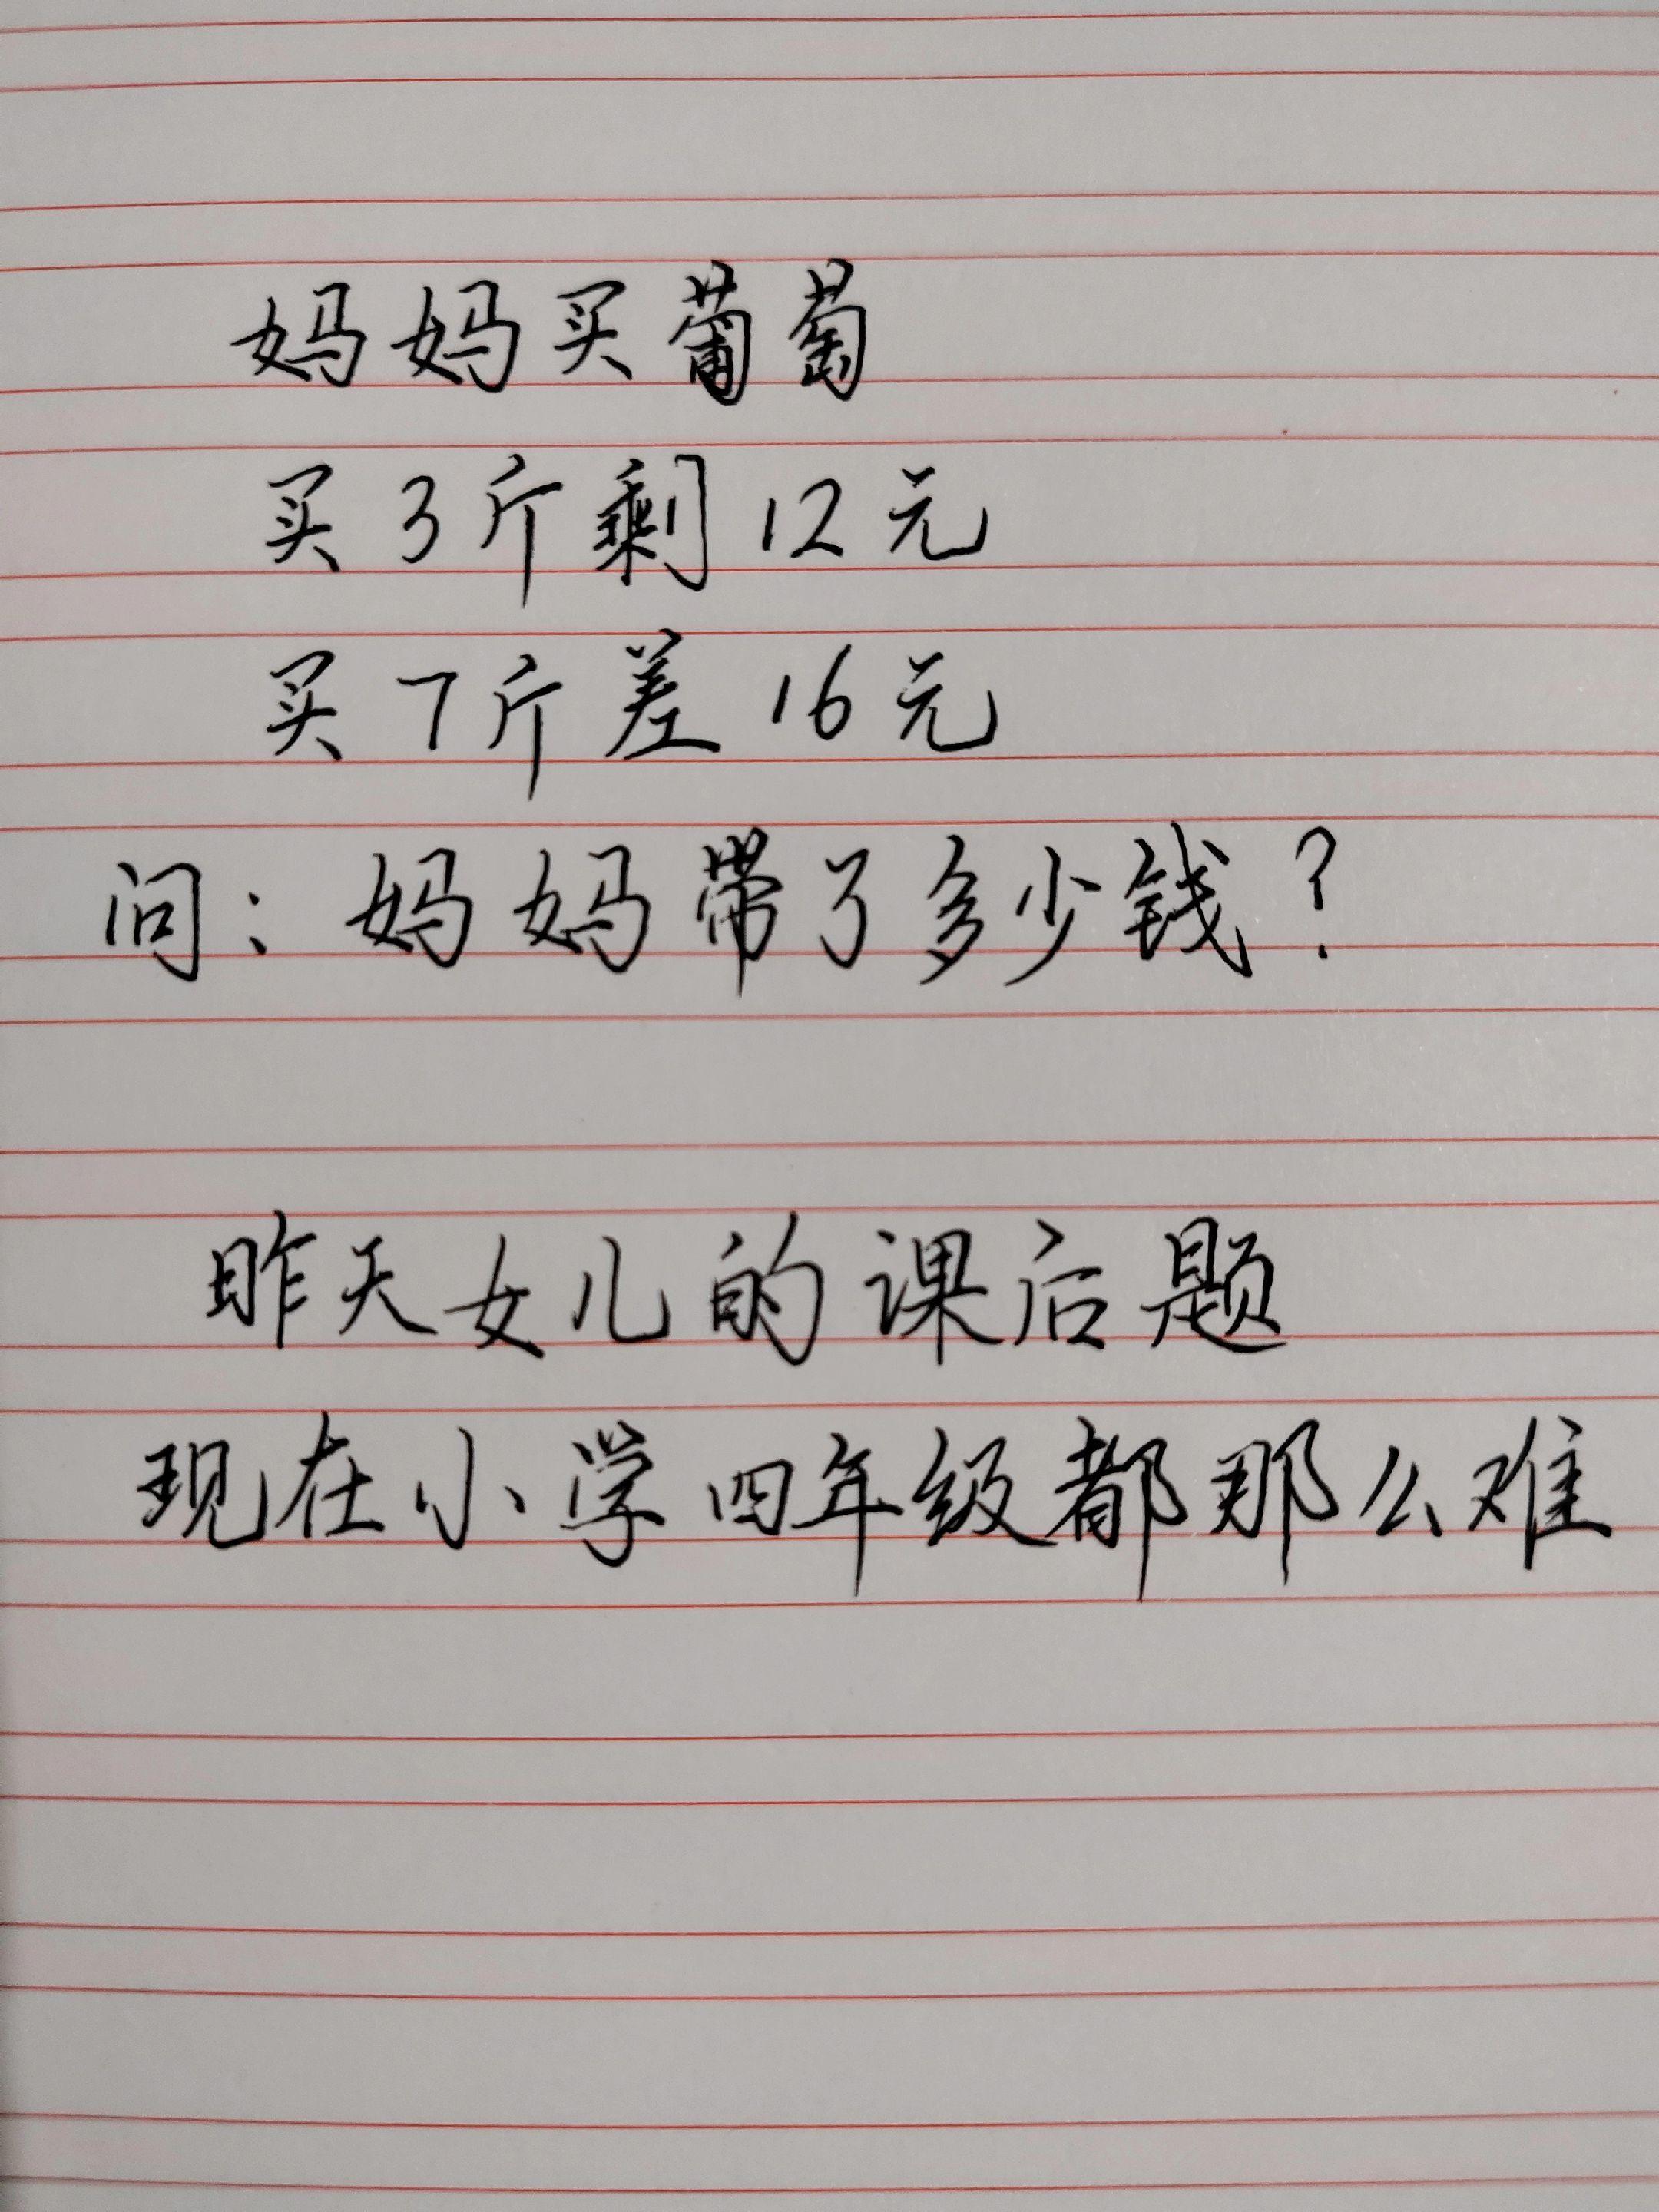 妈妈买葡萄
买3斤剩12元
买7斤差16元
问：妈妈带了多少钱？
昨天女儿的课后题
现在小学四年级都那么难